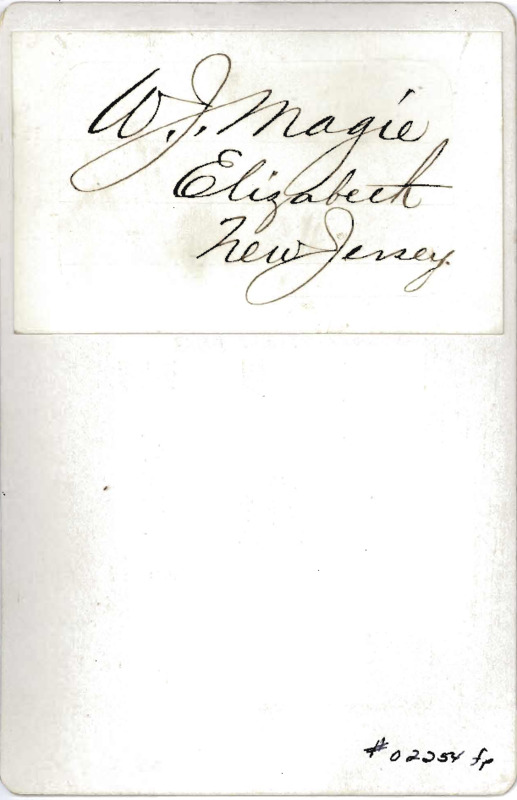 W. J. Magie
Elizabeth
New Jersey.
# 02254 fp